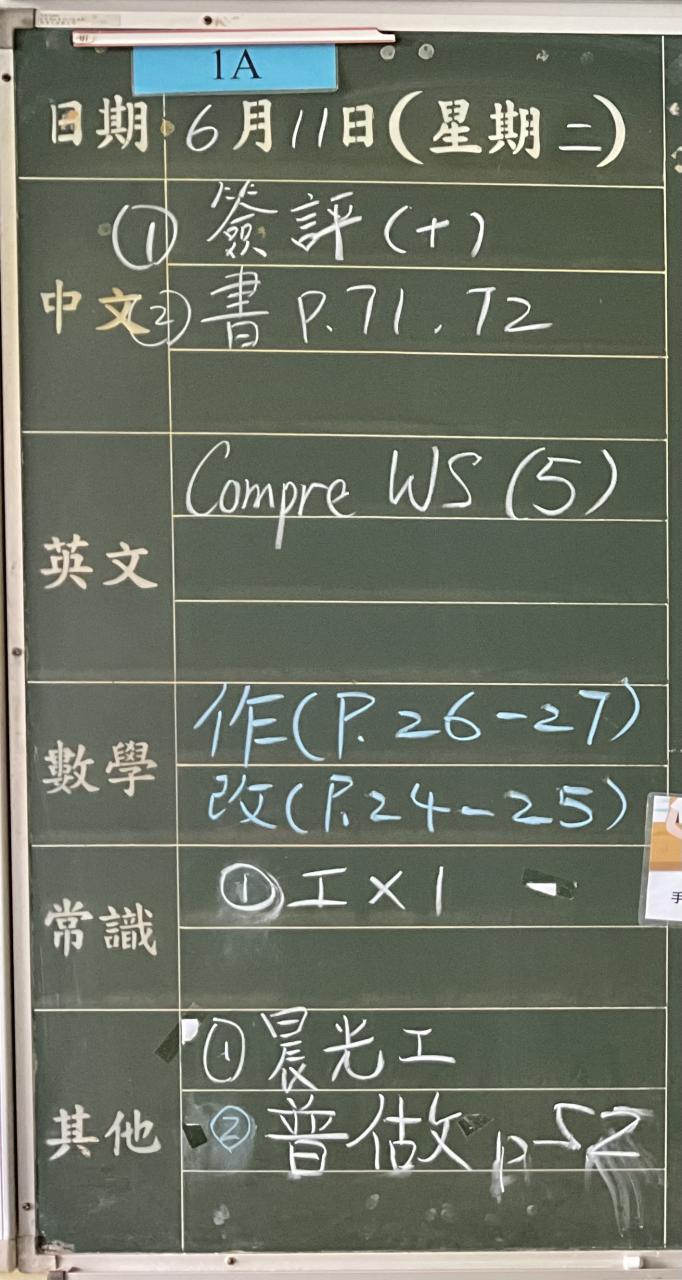 1A
日期 6月11日(星期二)
① 簽評(+)
中文 ② 書 P.71、72
英文 Compre WS (5)
數學 作(P.26-27)
改(P.24-25)
常識 ① 工×1
其他 ① 晨光工
② 普做 p52
手